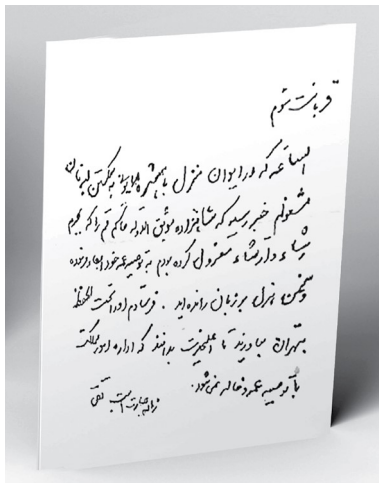 قربانت شوم
الساعه که در ایوان منزل با همشیره همایونی به شکستن لبه نان
مشغولم خبر رسید که شاهزاده موثق الدوله حاکم قم را که بجرم
رشاء و ارتشاء معزول کرده بودم به توصیه عمه خود ابقاء فرموده
و سخن هزل بر زبان رانده اید. فرستادم او را تحت الحفظ
بتهران بیاورند تا اعلیحضرت بدانند که اداره امور مملکت
با توصیه عمه و خاله نمی شود.
زیاده جسارت است تقی